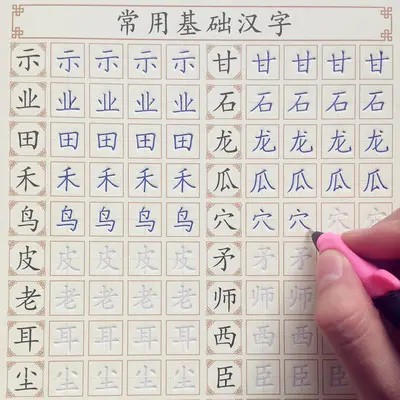 常用基础汉字
示示示示示甘甘甘甘甘
业业业业业石石石石石
田田田田田龙龙龙龙龙
禾禾禾禾禾瓜瓜瓜瓜瓜
鸟鸟鸟鸟鸟穴穴穴穴穴
皮皮皮皮皮矛矛矛
老老老老老师师师
耳耳耳耳耳西西西
尘尘尘尘尘臣臣臣